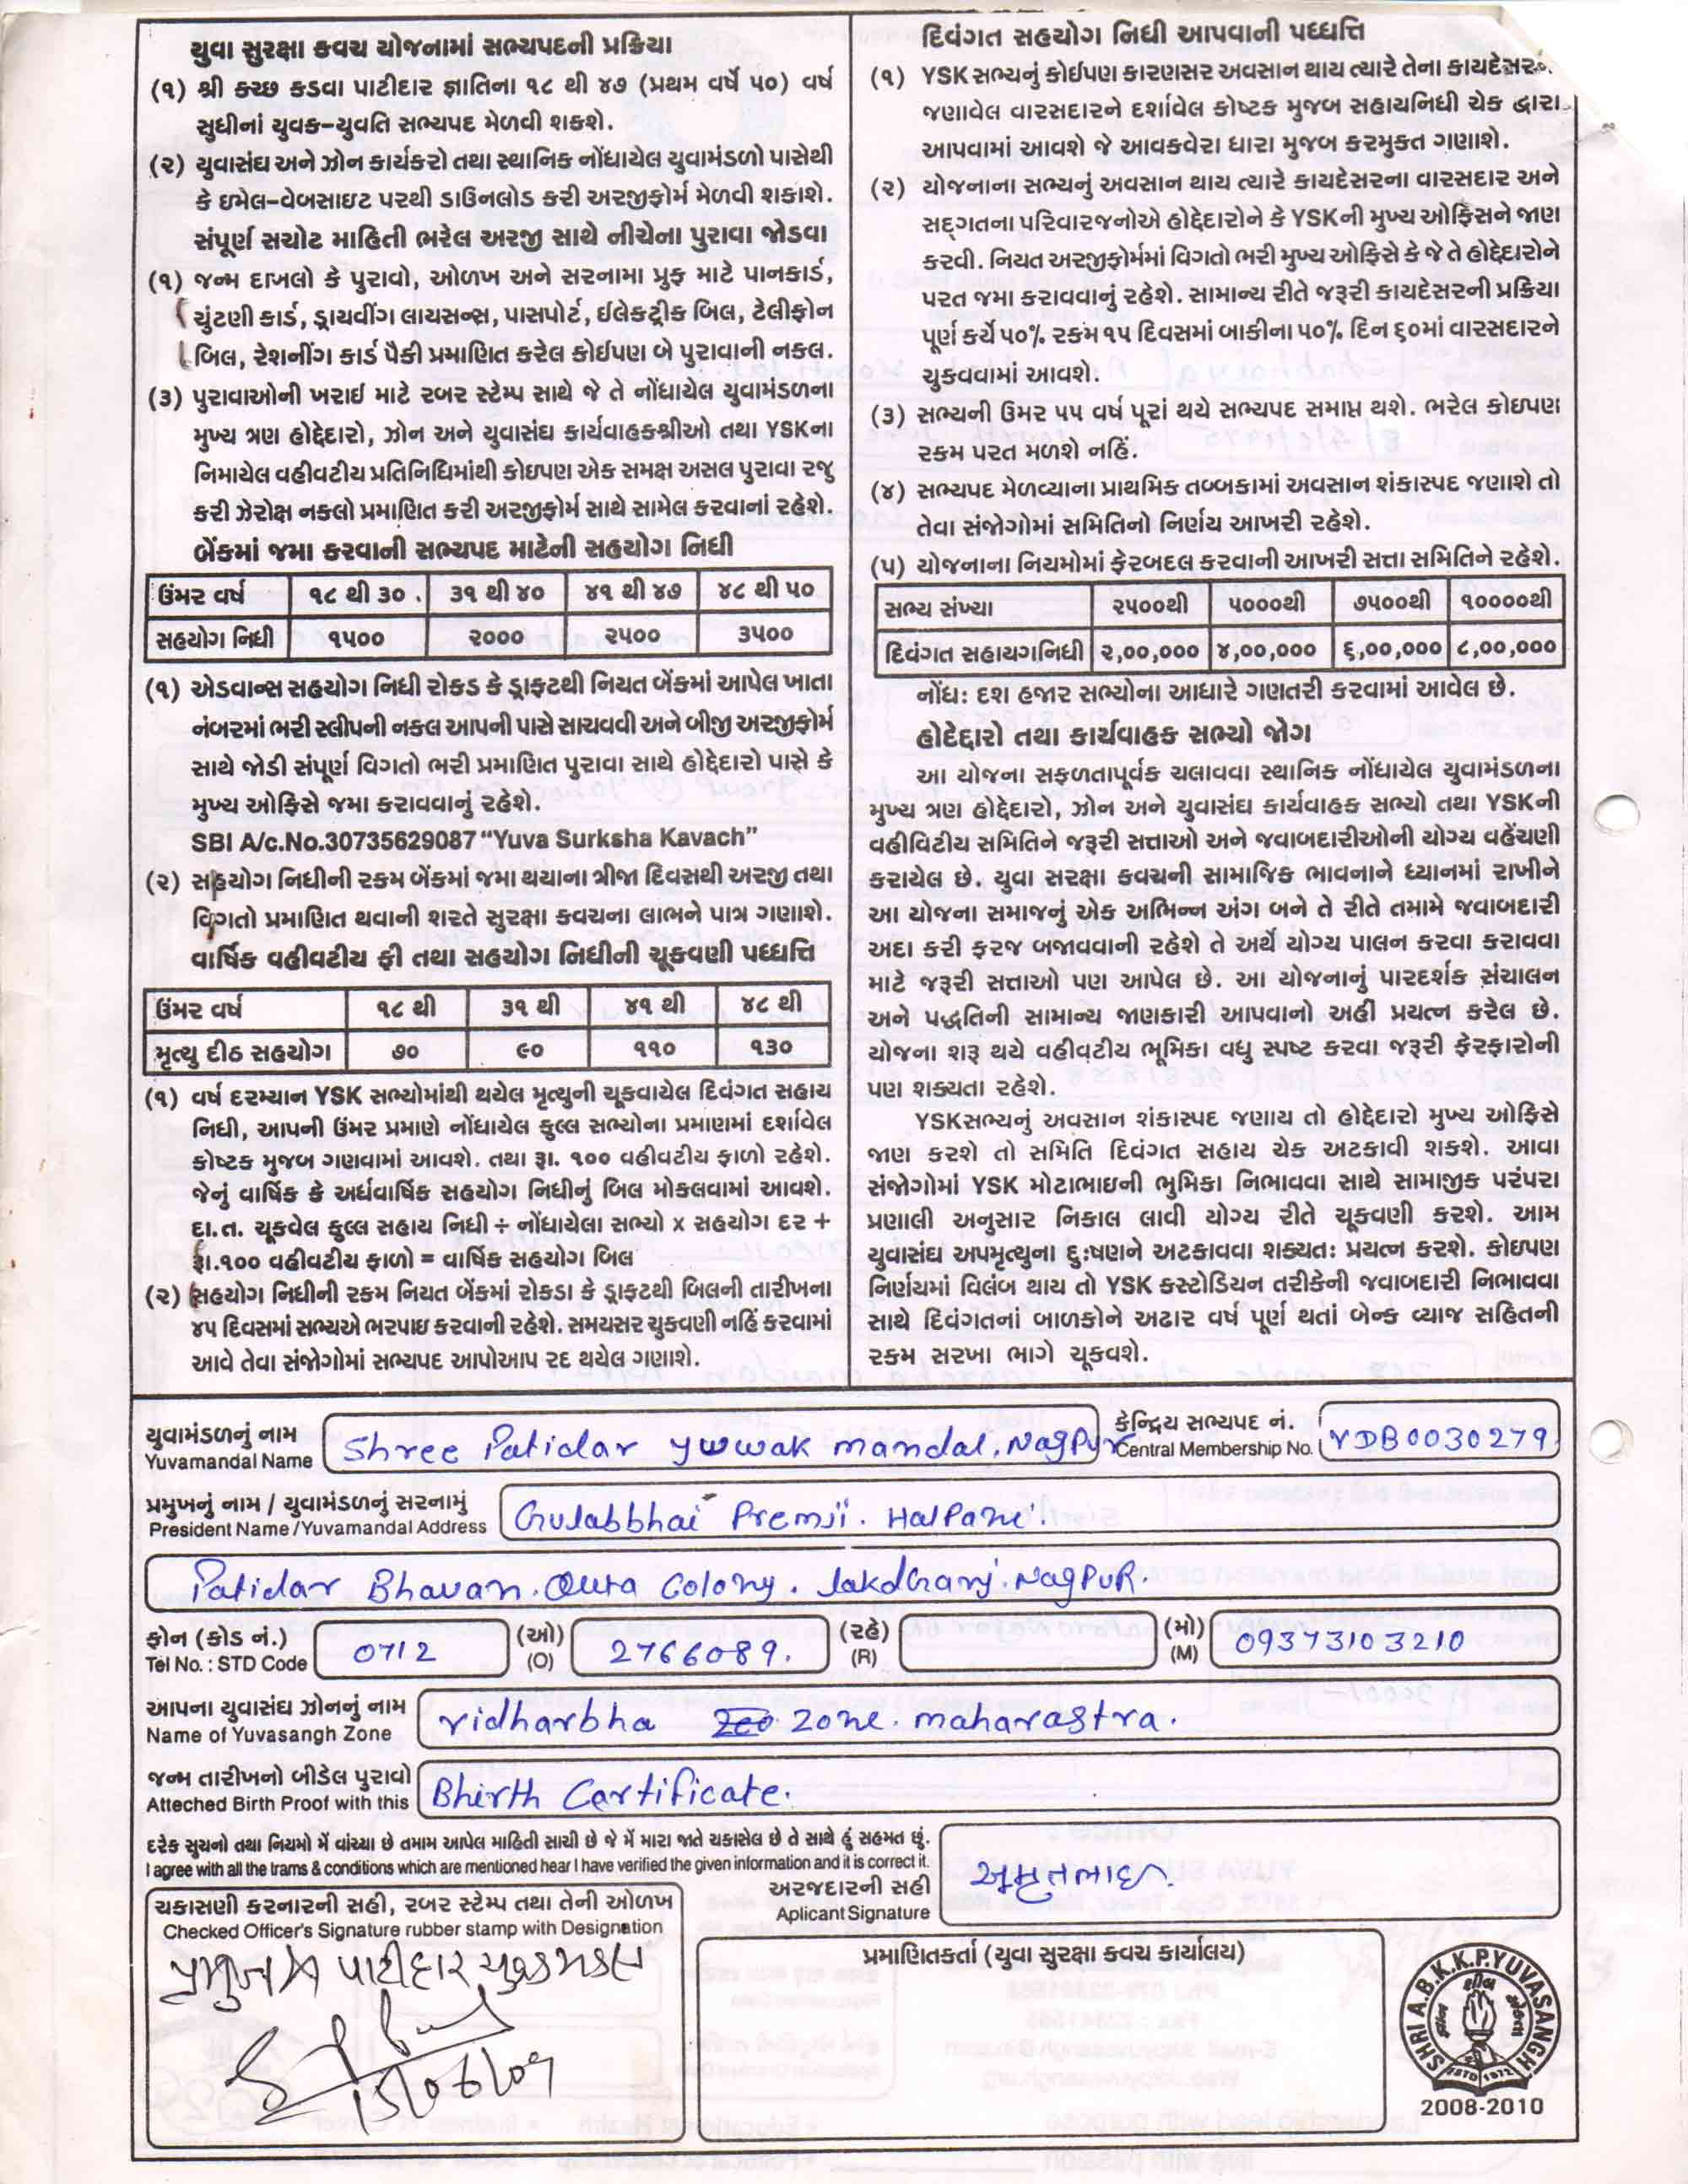 યુવા સુરક્ષા કવચ યોજનામાં સભ્યપદની પ્રક્રિયા
(૧) શ્રી કચ્છ કડવા પાટીદાર જ્ઞાતિના ૧૮ થી ૪૭ (પ્રથમ વર્ષે ૫૦) વર્ષ
સુધીનાં યુવક-યુવતિ સભ્યપદ મેળવી શકશે.
(૨) યુવાસંઘ અને ઝોન કાર્યકરો તથા સ્થાનિક નોંધાયેલ યુવામંડળો પાસેથી
કે ઇમેલ-વેબસાઇટ પરથી ડાઉનલોડ કરી અરજીફોર્મ મેળવી શકાશે.
સંપૂર્ણ સચોટ માહિતી ભરેલ અરજી સાથે નીચેના પુરાવા જોડવા
(૧) જન્મ દાખલો કે પુરાવો, ઓળખ અને સરનામા પ્રુફ માટે પાનકાર્ડ,
ચુંટણી કાર્ડ, ડ્રાયવીંગ લાયસન્સ, પાસપોર્ટ, ઈલેકટ્રીક બિલ, ટેલીફોન
બિલ, રેશનીંગ કાર્ડ પૈકી પ્રમાણિત કરેલ કોઈપણ બે પુરાવાની નકલ.
(૩) પુરાવાઓની ખરાઇ માટે રબર સ્ટેમ્પ સાથે જે તે નોંધાયેલ યુવામંડળના
મુખ્ય ત્રણ હોદ્દેદારો, ઝોન અને યુવાસંઘ કાર્યવાહકશ્રીઓ તથા YSKના
નિમાયેલ વહીવટીય પ્રતિનિધિમાંથી કોઇપણ એક સમક્ષ અસલ પુરાવા રજુ
કરી ઝેરોક્ષ નકલો પ્રમાણિત કરી અરજીફોર્મ સાથે સામેલ કરવાનાં રહેશે.
બેંકમાં જમા કરવાની સભ્યપદ માટેની સહયોગ નિધી
ઉંમર વર્ષ ૧૮ થી ૩૦ ૩૧ થી ૪૦ ૪૧ થી ૪૭ ૪૮ થી ૫૦
સહયોગ નિધી ૧૫૦૦ ૨૦૦૦ ૨૫૦૦ ૩૫૦૦
(૧) એડવાન્સ સહયોગ નિધી રોકડ કે ડ્રાફટથી નિયત બેંકમાં આપેલ ખાતા
નંબરમાં ભરી સ્લીપની નકલ આપની પાસે સાચવવી અને બીજી અરજીફોર્મ
સાથે જોડી સંપૂર્ણ વિગતો ભરી પ્રમાણિત પુરાવા સાથે હોદ્દેદારો પાસે કે
મુખ્ય ઓફિસે જમા કરાવવાનું રહેશે.
SBI A/c.No.30735629087 “Yuva Surksha Kavach”
(૨) સહયોગ નિધીની રકમ બેંકમાં જમા થયાના ત્રીજા દિવસથી અરજી તથા
વિગતો પ્રમાણિત થવાની શરતે સુરક્ષા કવચના લાભને પાત્ર ગણાશે.
વાર્ષિક વહીવટીય ફી તથા સહયોગ નિધીની ચૂકવણી પધ્ધતિ
ઉંમર વર્ષ ૧૮ થી ૩૧ થી ૪૧ થી ૪૮ થી
મૃત્યુ દીઠ સહયોગ ૭૦ ૯૦ ૧૧૦ ૧૩૦
(૧) વર્ષ દરમ્યાન YSK સભ્યોમાંથી થયેલ મૃત્યુની ચૂકવાયેલ દિવંગત સહાય
નિધી, આપની ઉંમર પ્રમાણે નોંધાયેલ કુલ્લ સભ્યોના પ્રમાણમાં દર્શાવેલ
કોષ્ટક મુજબ ગણવામાં આવશે. તથા રૂા. ૧૦૦ વહીવટીય ફાળો રહેશે.
જેનું વાર્ષિક કે અર્ધવાર્ષિક સહયોગ નિધીનું બિલ મોકલવામાં આવશે.
દા.ત. ચૂકવેલ કુલ્લ સહાય નિધી ÷ નોંધાયેલા સભ્યો x સહયોગ દર +
રૂા.૧૦૦ વહીવટીય ફાળો = વાર્ષિક સહયોગ બિલ
(૨) સહયોગ નિધીની રકમ નિયત બેંકમાં રોકડા કે ડ્રાફટથી બિલની તારીખના
૪૫ દિવસમાં સભ્યએ ભરપાઇ કરવાની રહેશે. સમયસર ચુકવણી નહિં કરવામાં
આવે તેવા સંજોગોમાં સભ્યપદ આપોઆપ રદ થયેલ ગણાશે.
દિવંગત સહયોગ નિધી આપવાની પધ્ધતિ
(૧) YSK સભ્યનું કોઈપણ કારણસર અવસાન થાય ત્યારે તેના કાયદેસર
જણાવેલ વારસદારને દર્શાવેલ કોષ્ટક મુજબ સહાયનિધી ચેક દ્વારા
આપવામાં આવશે જે આવકવેરા ધારા મુજબ કરમુકત ગણાશે.
(૨) યોજનાના સભ્યનું અવસાન થાય ત્યારે કાયદેસરના વારસદાર અને
સદ્ગતના પરિવારજનોએ હોદ્દેદારોને કે YSKની મુખ્ય ઓફિસને જાણ
કરવી. નિયત અરજીફોર્મમાં વિગતો ભરી મુખ્ય ઓફિસે કે જે તે હોદ્દેદારોને
પરત જમા કરાવવાનું રહેશે. સામાન્ય રીતે જરૂરી કાયદેસરની પ્રક્રિયા
પૂર્ણ કર્યે ૫૦% રકમ ૧૫ દિવસમાં બાકીના ૫૦% દિન ૬૦માં વારસદારને
ચુકવવામાં આવશે.
(૩) સભ્યની ઉમર ૫૫ વર્ષ પૂરાં થયે સભ્યપદ સમાપ્ત થશે. ભરેલ કોઇપણ
રકમ પરત મળશે નહિં.
(૪) સભ્યપદ મેળવ્યાના પ્રાથમિક તબ્બકામાં અવસાન શંકાસ્પદ જણાશે તો
તેવા સંજોગોમાં સમિતિનો નિર્ણય આખરી રહેશે.
(૫) યોજનાના નિયમોમાં ફેરબદલ કરવાની આખરી સત્તા સમિતિને રહેશે.
સભ્ય સંખ્યા ૨૫૦૦થી ૫૦૦૦થી ૭૫૦૦થી ૧૦૦૦૦થી
દિવંગત સહાયગનિધી ૨,૦૦,૦૦૦ ૪,૦૦,૦૦૦ ૬,૦૦,૦૦૦ ૮,૦૦,૦૦૦
નોંધ: દશ હજાર સભ્યોના આધારે ગણતરી કરવામાં આવેલ છે.
હોદેદ્દારો તથા કાર્યવાહક સભ્યો જોગ
આ યોજના સફળતાપૂર્વક ચલાવવા સ્થાનિક નોંધાયેલ યુવામંડળના
મુખ્ય ત્રણ હોદ્દેદારો, ઝોન અને યુવાસંઘ કાર્યવાહક સભ્યો તથા YSKની
વહીવિટીય સમિતિને જરૂરી સત્તાઓ અને જવાબદારીઓની યોગ્ય વહેંચણી
કરાયેલ છે. યુવા સરક્ષા કવચની સામાજિક ભાવનાને ધ્યાનમાં રાખીને
આ યોજના સમાજનું એક અભિન્ન અંગ બને તે રીતે તમામે જવાબદારી
અદા કરી ફરજ બજાવવાની રહેશે તે અર્થે યોગ્ય પાલન કરવા કરાવવા
માટે જરૂરી સત્તાઓ પણ આપેલ છે. આ યોજનાનું પારદર્શક સંચાલન
અને પદ્ધતિની સામાન્ય જાણકારી આપવાનો અહીં પ્રયત્ન કરેલ છે.
યોજના શરૂ થયે વહીવટીય ભૂમિકા વધુ સ્પષ્ટ કરવા જરૂરી ફેરફારોની
પણ શક્યતા રહેશે.
YSKસભ્યનું અવસાન શંકાસ્પદ જણાય તો હોદ્દેદારો મુખ્ય ઓફિસે
જાણ કરશે તો સમિતિ દિવંગત સહાય ચેક અટકાવી શકશે. આવા
સંજોગોમાં YSK મોટાભાઇની ભુમિકા નિભાવવા સાથે સામાજીક પરંપરા
પ્રણાલી અનુસાર નિકાલ લાવી યોગ્ય રીતે ચૂકવણી કરશે. આમ
યુવાસંઘ અપમૃત્યુના દુઃષણને અટકાવવા શક્યત: પ્રયત્ન કરશે. કોઇપણ
નિર્ણયમાં વિલંબ થાય તો YSK કસ્ટોડિયન તરીકેની જવાબદારી નિભાવવા
સાથે દિવંગતનાં બાળકોને અઢાર વર્ષ પૂર્ણ થતાં બેન્ક વ્યાજ સહિતની
રકમ સરખા ભાગે ચૂકવશે.
યુવામંડળનું નામ
Yuvamandal Name
Shree Patidar yuwak mandal, Nagpur
કેન્દ્રિય સભ્યપદ નં.
Central Membership No.
VDB0030279
પ્રમુખનું નામ / યુવામંડળનું સરનામું
President Name/Yuvamandal Address
Gulabbhai Premji. Halpani.
Patidar Bhavan. Queta Colony. Lakdganj. Nagpur.
ફોન (કોડ નં.)
Tel No. : STD Code
0712
(ઓ)
(O)
2766089.
(રહે)
(R)
(મો)
(M)
09373103210
આપના યુવાસંઘ ઝોનનું નામ
Name of Yuvasangh Zone
vidharbha Zone. maharastra.
જન્મ તારીખનો બીડેલ પુરાવો
Atteched Birth Proof with this
Bhirth Cartificate.
દરેક સુચનો તથા નિયમો મેં વાંચ્યા છે તમામ આપેલ માહિતી સાચી છે જે મેં મારા જાતે ચકાસેલ છે તે સાથે હું સહમત છું.
I agree with all the trams & conditions which are mentioned hear I have verified the given information and it is correct it.
અરજદારની સહી
Aplicant Signature
અમૃતભાઇ
ચકાસણી કરનારની સહી, રબર સ્ટેમ્પ તથા તેની ઓળખ
Checked Officer's Signature rubber stamp with Designation
પ્રમુખ પાટીદાર યુવક મંડળ
15/06/09
પ્રમાણિતકર્તા (યુવા સુરક્ષા કવચ કાર્યાલય)
SHRI A.B.K.K.P. YUVASANGH
ESTD 1972
2008-2010